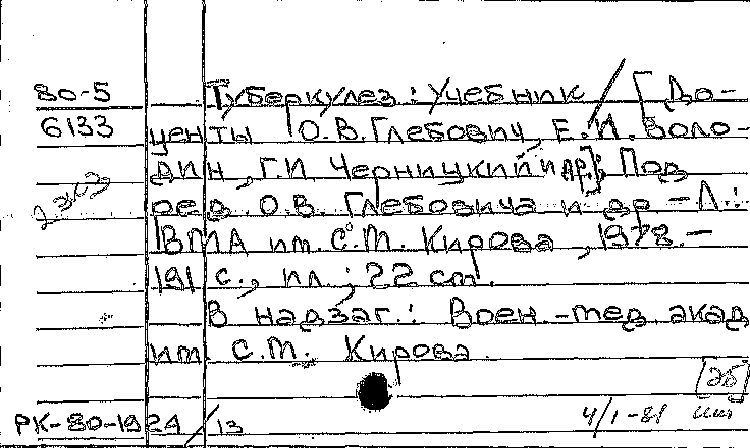 80-5 Туберкулез : Учебник / [До-
6133 центы О.В. Глебович, Е.И. Воло-
дин, Г.И. Черницкий и др.]; Под
2 экз ред. О.В. Глебовича и др. – Л.:
ВМА им. С.М. Кирова, 1978. –
191 с., ил.; 22 см.
В надзаг.: Воен.-мед. акад
им С.М. Кирова.
[Эб]
РК-80-1924/13 4/1-81